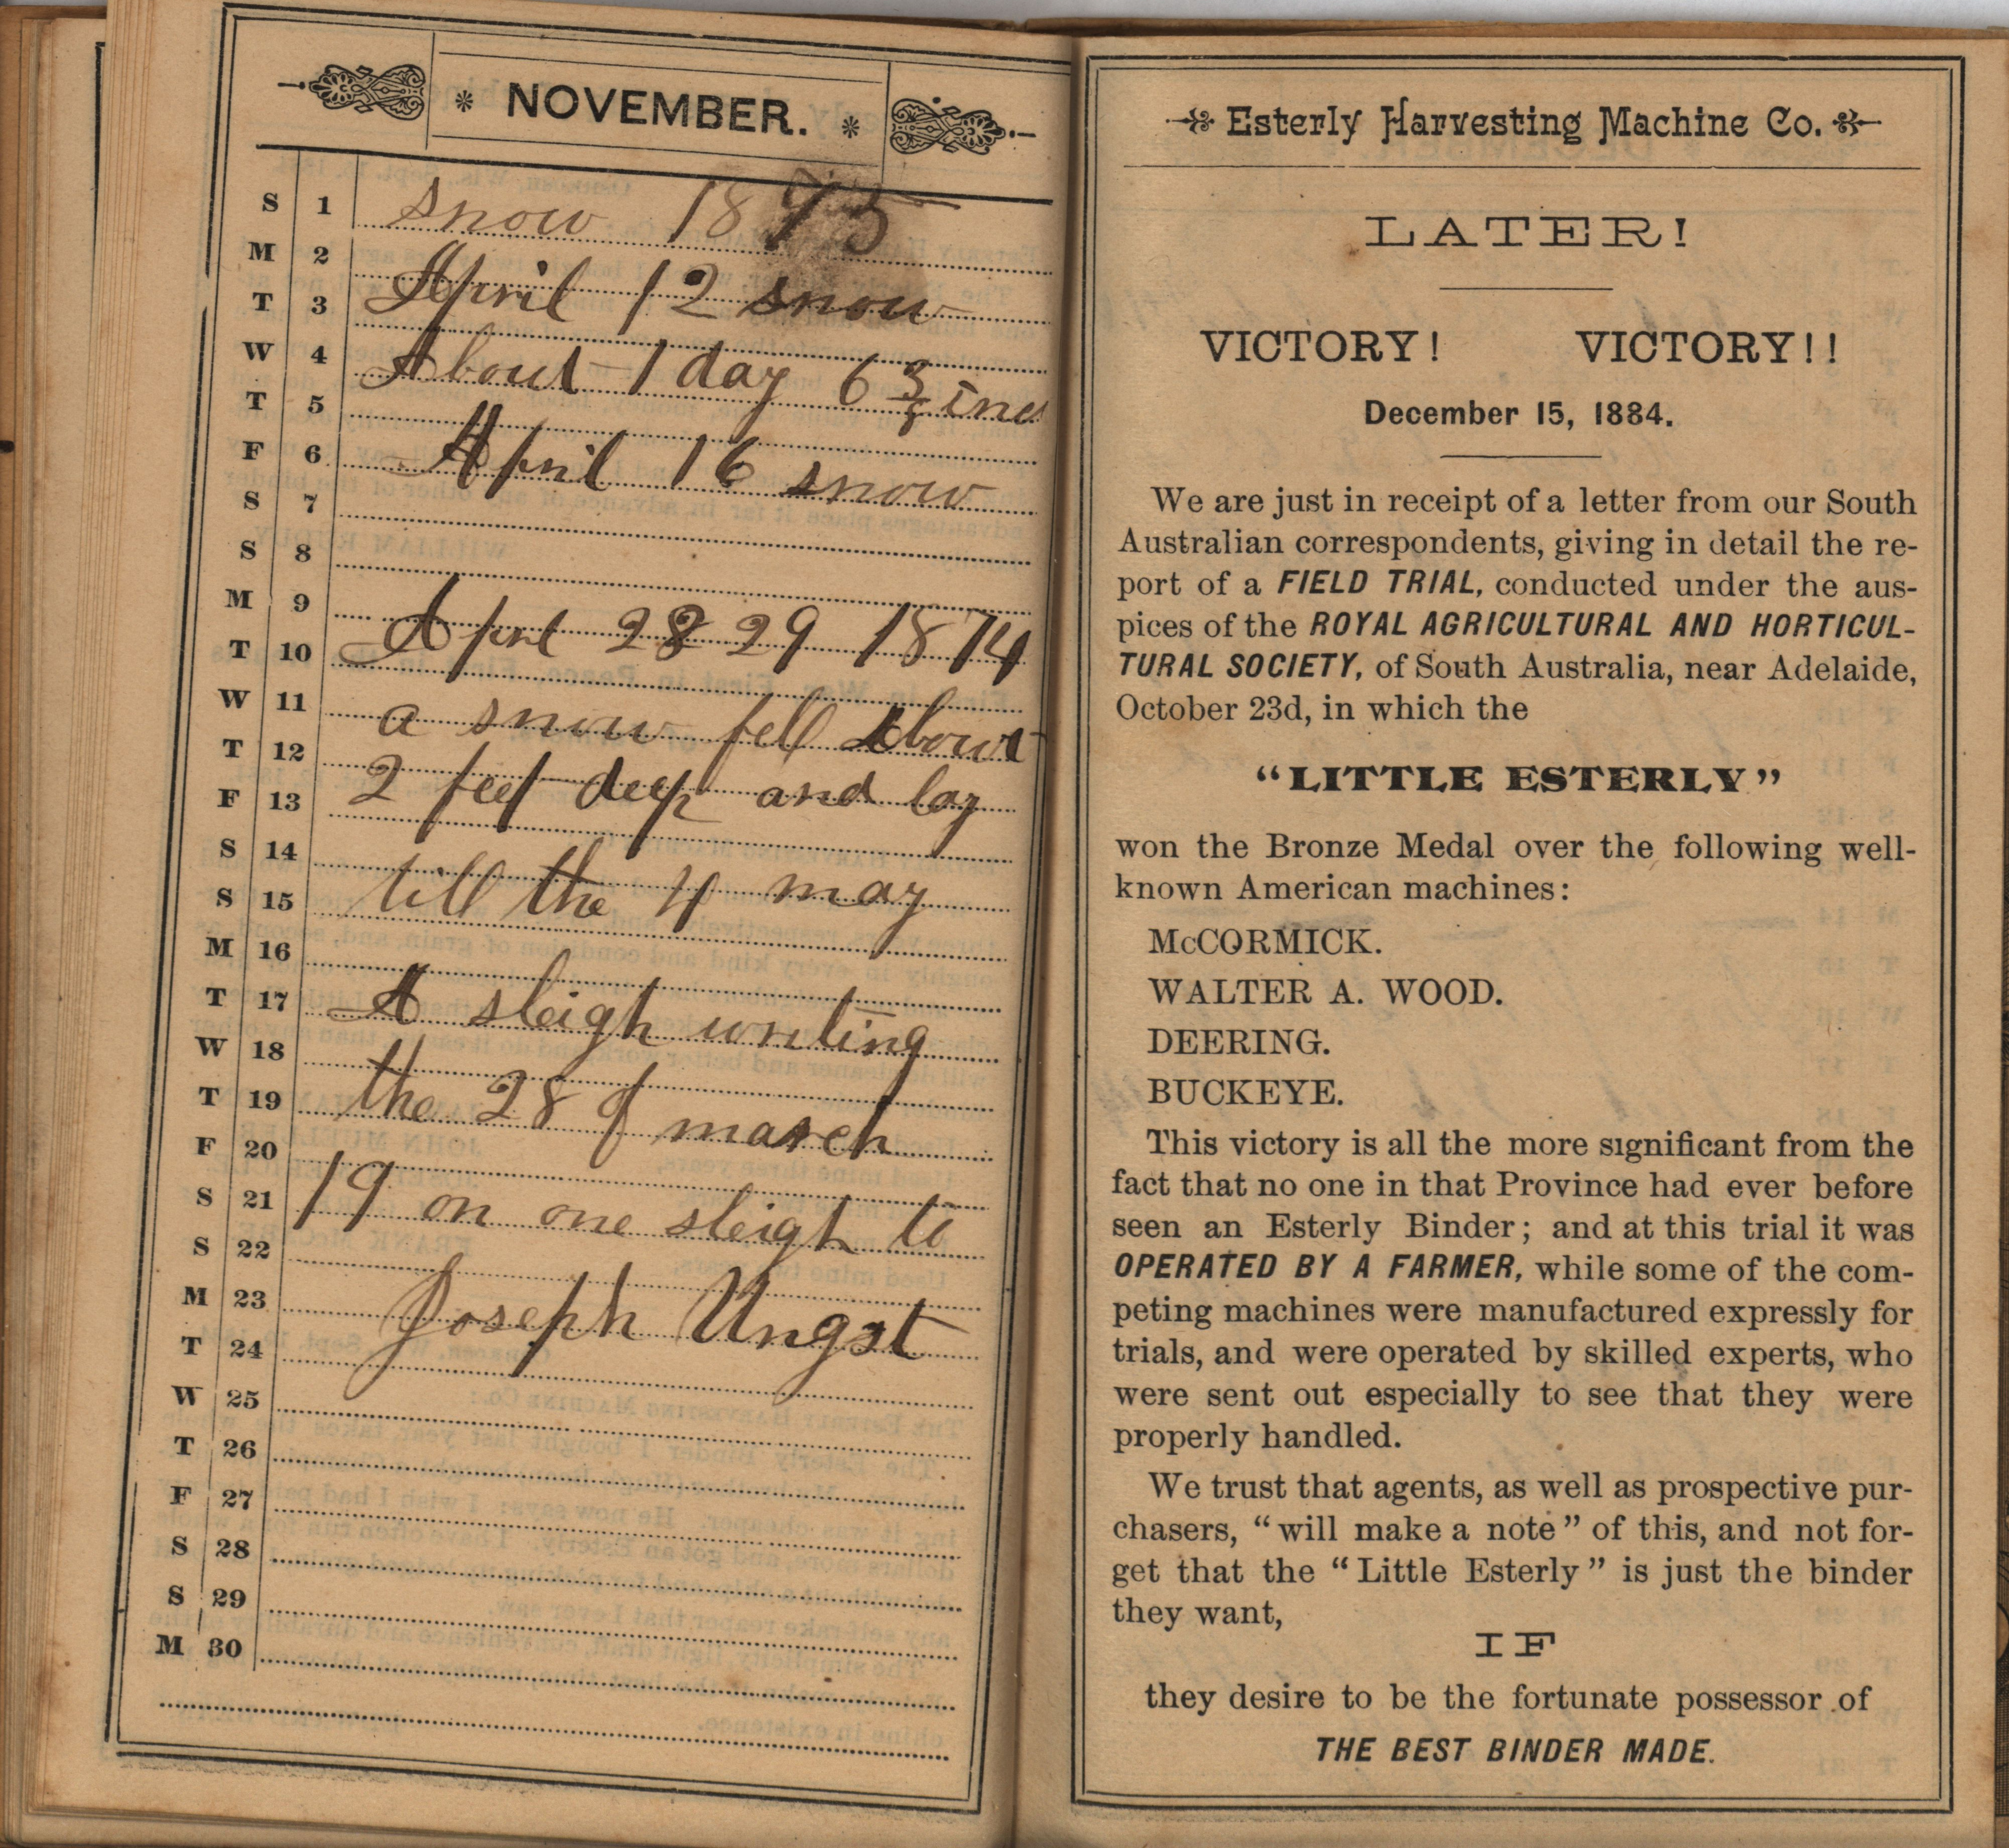 NOVEMBER.
S 1 snow 1875
M 2
T 3 April 12 snow
W 4
About 1 day 6 3/5 inc
T 5
F 6 April 16 snow
S 7
S 8
M 9
T 10 Aprl 28 29 1874
W 11
a snow fell About
T 12
F 13 2 feet deep and lay
S 14
S 15 till the 4 may
M 16
T 17 A sleigh writing
W 18
T 19 the 28 of march
F 20
S 21 19 on one sleigh to
S 22
M 23
Joseph Ungst
T 24
W 25
T 26
F 27
S 28
S 29
M 30
Esterly Harvesting Machine Co.
LATER!
VICTORY! VICTORY!!
December 15, 1884.
We are just in receipt of a letter from our South
Australian correspondents, giving in detail the re-
port of a FIELD TRIAL, conducted under the aus-
pices of the ROYAL AGRICULTURAL AND HORTICUL-
TURAL SOCIETY, of South Australia, near Adelaide,
October 23d, in which the
"LITTLE ESTERLY"
won the Bronze Medal over the following well-
known American machines:
McCORMICK.
WALTER A. WOOD.
DEERING.
BUCKEYE.
This victory is all the more significant from the
fact that no one in that Province had ever before
seen an Esterly Binder; and at this trial it was
OPERATED BY A FARMER, while some of the com-
peting machines were manufactured expressly for
trials, and were operated by skilled experts, who
were sent out especially to see that they were
properly handled.
We trust that agents, as well as prospective pur-
chasers, "will make a note" of this, and not for-
get that the "Little Esterly" is just the binder
they want,
IF
they desire to be the fortunate possessor of
THE BEST BINDER MADE.